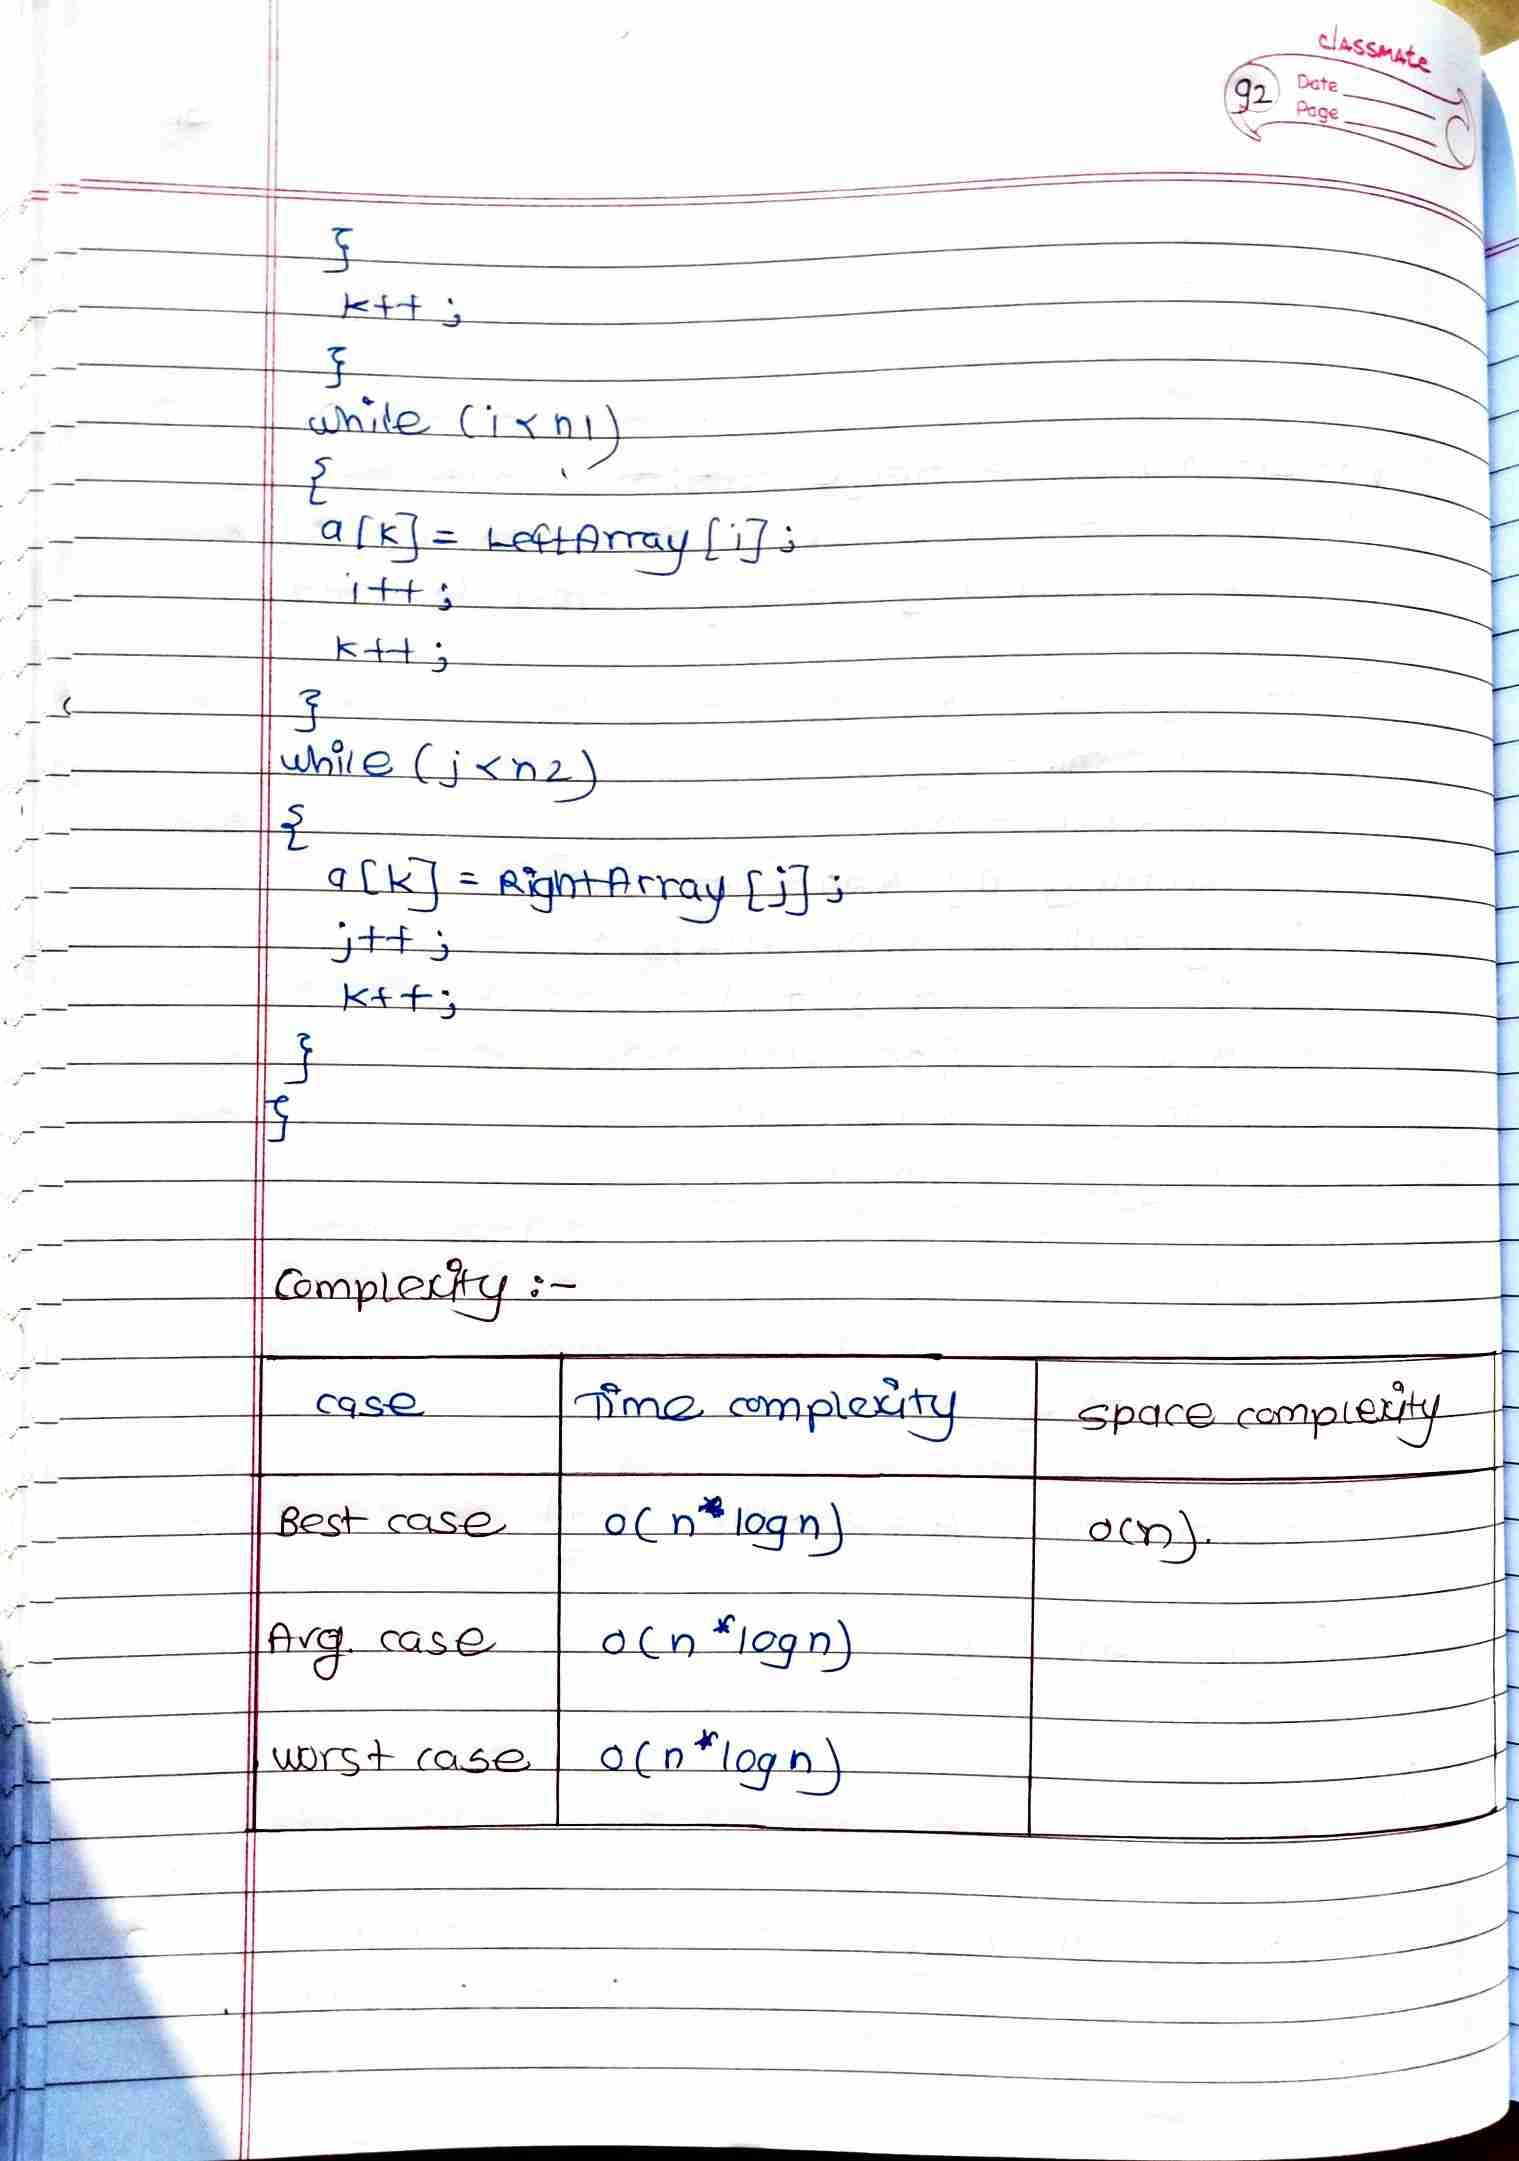 classmate
92
Date
Page
}
k++ ;
}
while (i<n1)
{
a[k] = LeftArray [i] ;
i++ ;
k++ ;
}
while (j<n2)
{
a[k] = RightArray [j] ;
j++ ;
k++ ;
}
}
Complexity :-
case Time complexity space complexity
Best case o(n*logn) o(n).
Avg. case o(n*logn)
worst case o(n*logn)